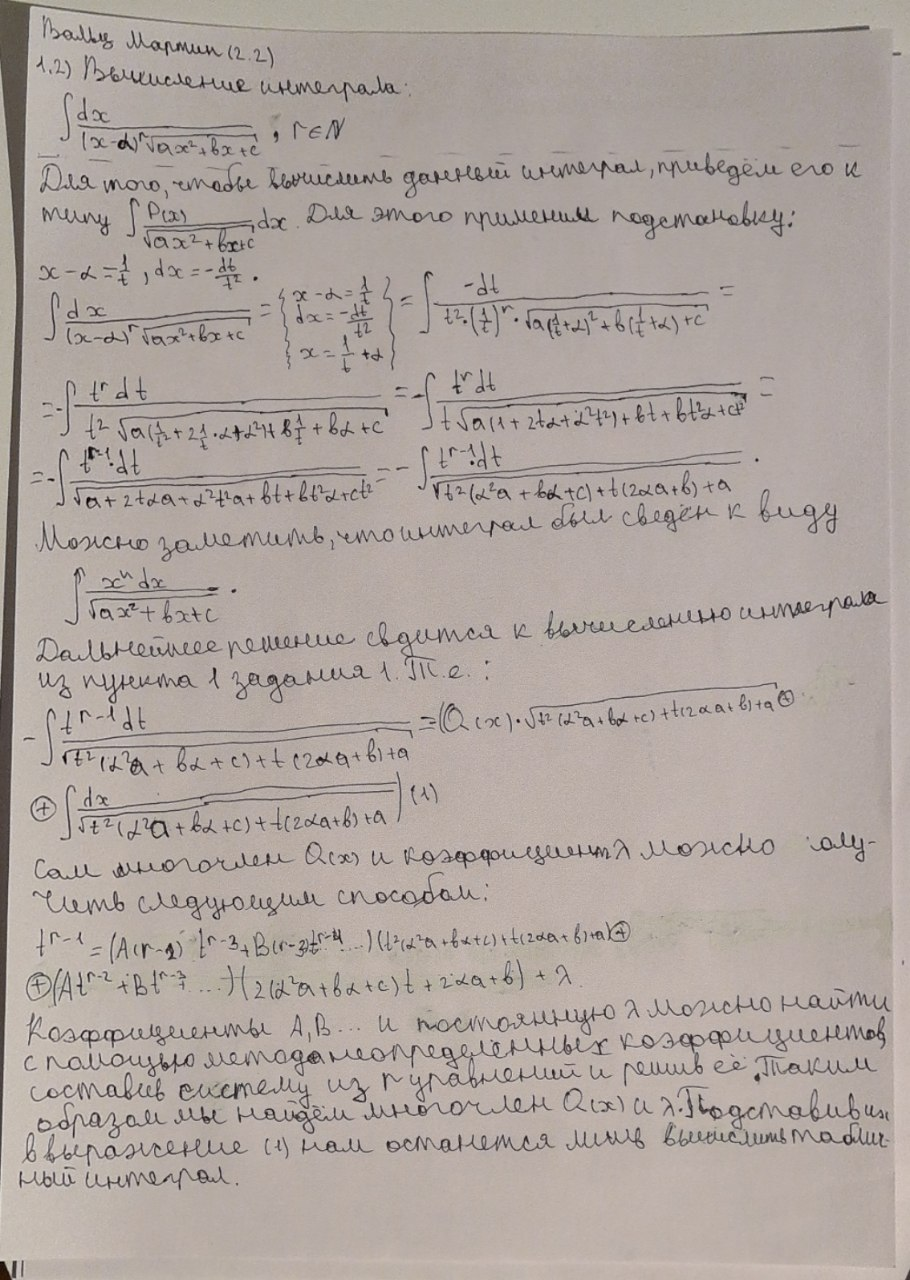 Вальц Мартин (2.2)
1.2) Вычисление интеграла:
∫ dx / ((x-α)^r √(ax²+bx+c)), r∈N
Для того, чтобы вычислить данный интеграл, приведём его к
типу ∫ P(x) / √(ax²+bx+c) dx. Для этого применим подстановку:
x-α = 1/t, dx = -dt/t².
∫ dx / ((x-α)^r √(ax²+bx+c)) = { x-α = 1/t; dx = -dt/t²; x = 1/t + α } = ∫ -dt / (t²·(1/t)^r · √(a(1/t+α)²+b(1/t+α)+c)) =
= -∫ t^r dt / (t² √(a(1/t²+2 1/t·α+α²)+b 1/t+bα+c)) = -∫ t^r dt / (t √(a(1+2tα+α²t²)+bt+bt²α+ct²)) =
= -∫ t^(r-1)·dt / √(a+2tαa+α²t²a+bt+bt²α+ct²) = -∫ t^(r-1)·dt / √(t²(α²a+bα+c)+t(2αa+b)+a).
Можно заметить, что интеграл был сведён к виду
∫ x^n dx / √(ax²+bx+c).
Дальнейшее решение сводится к вычислению интеграла
из пункта 1 задания 1. Т.е.:
-∫ t^(r-1) dt / √(t²(α²a+bα+c)+t(2αa+b)+a) = (Q(x)·√(t²(α²a+bα+c)+t(2αa+b)+a) ⊕
⊕ ∫ dx / √(t²(α²a+bα+c)+t(2αa+b)+a)) (1)
Сам многочлен Q(x) и коэффициент λ можно полу-
чить следующим способом:
t^(r-1) = (A(r-2) t^(r-3)+B(r-3)t^(r-4)...)(t²(α²a+bα+c)+t(2αa+b)+a) ⊕
⊕ (At^(r-2)+Bt^(r-3)+...)(2(α²a+bα+c)t+2αa+b)+λ
Коэффициенты A,B... и постоянную λ можно найти
с помощью метода неопределённых коэффициентов,
составив систему из r уравнений и решив её. Таким
образом мы найдём многочлен Q(x) и λ. Подставив их
в выражение (1) нам останется лишь вычислить таблич-
ный интеграл.